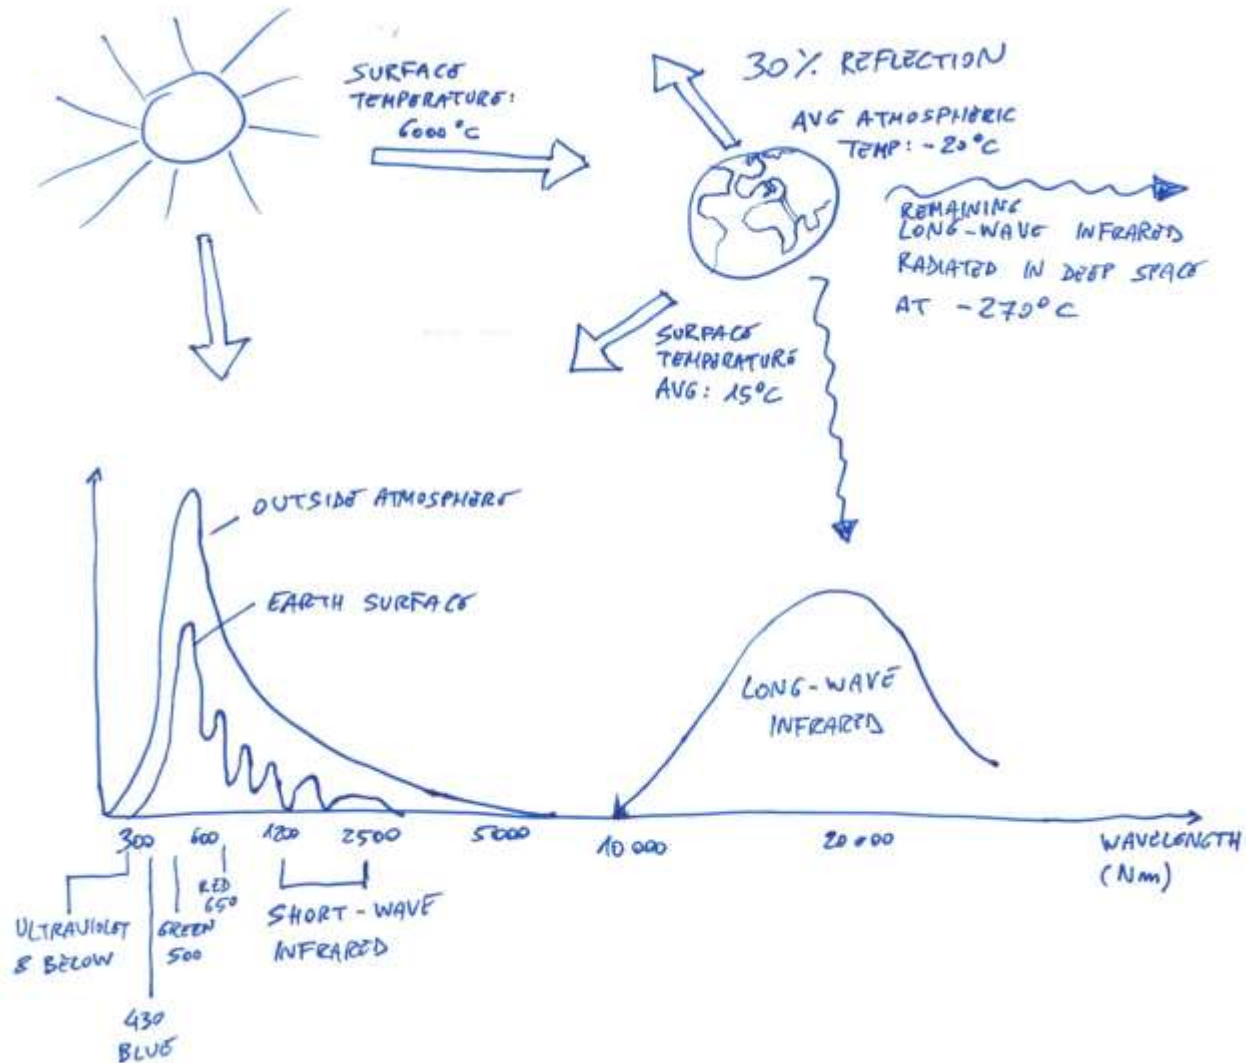 SURFACE
TEMPERATURE:
6000°C
30% REFLECTION
AVG ATMOSPHERIC
TEMP: -20°C
REMAINING
LONG-WAVE INFRARED
RADIATED IN DEEP SPACE
AT -270°C
SURFACE
TEMPERATURE
AVG: 15°C
OUTSIDE ATMOSPHERE
EARTH SURFACE
LONG-WAVE
INFRARED
300 600 1200 2500 5000 10 000 20 000
WAVELENGTH
(Nm)
ULTRAVIOLET
& BELOW
430
BLUE
GREEN
500
RED
650
SHORT-WAVE
INFRARED